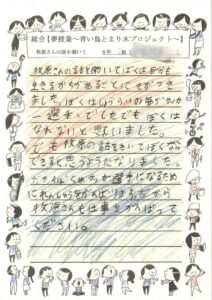 総合【夢授業〜青い鳥とまり木プロジェクト〜】
牧原さんの話を聞いて
年 組（
牧原さんの話を聞いてぼくは自分も
生きる力があることにきがつき
ました。ぼくはしょうらいの夢がサッカ
ー選手でしたでもぼくは
なれないと思いました。
でも牧原の話をきいてぼくなら
できると思うようになりました。
選手になるため
にれんしゅうをがんばりますだから
牧原さんも仕事をがんばって
ください。